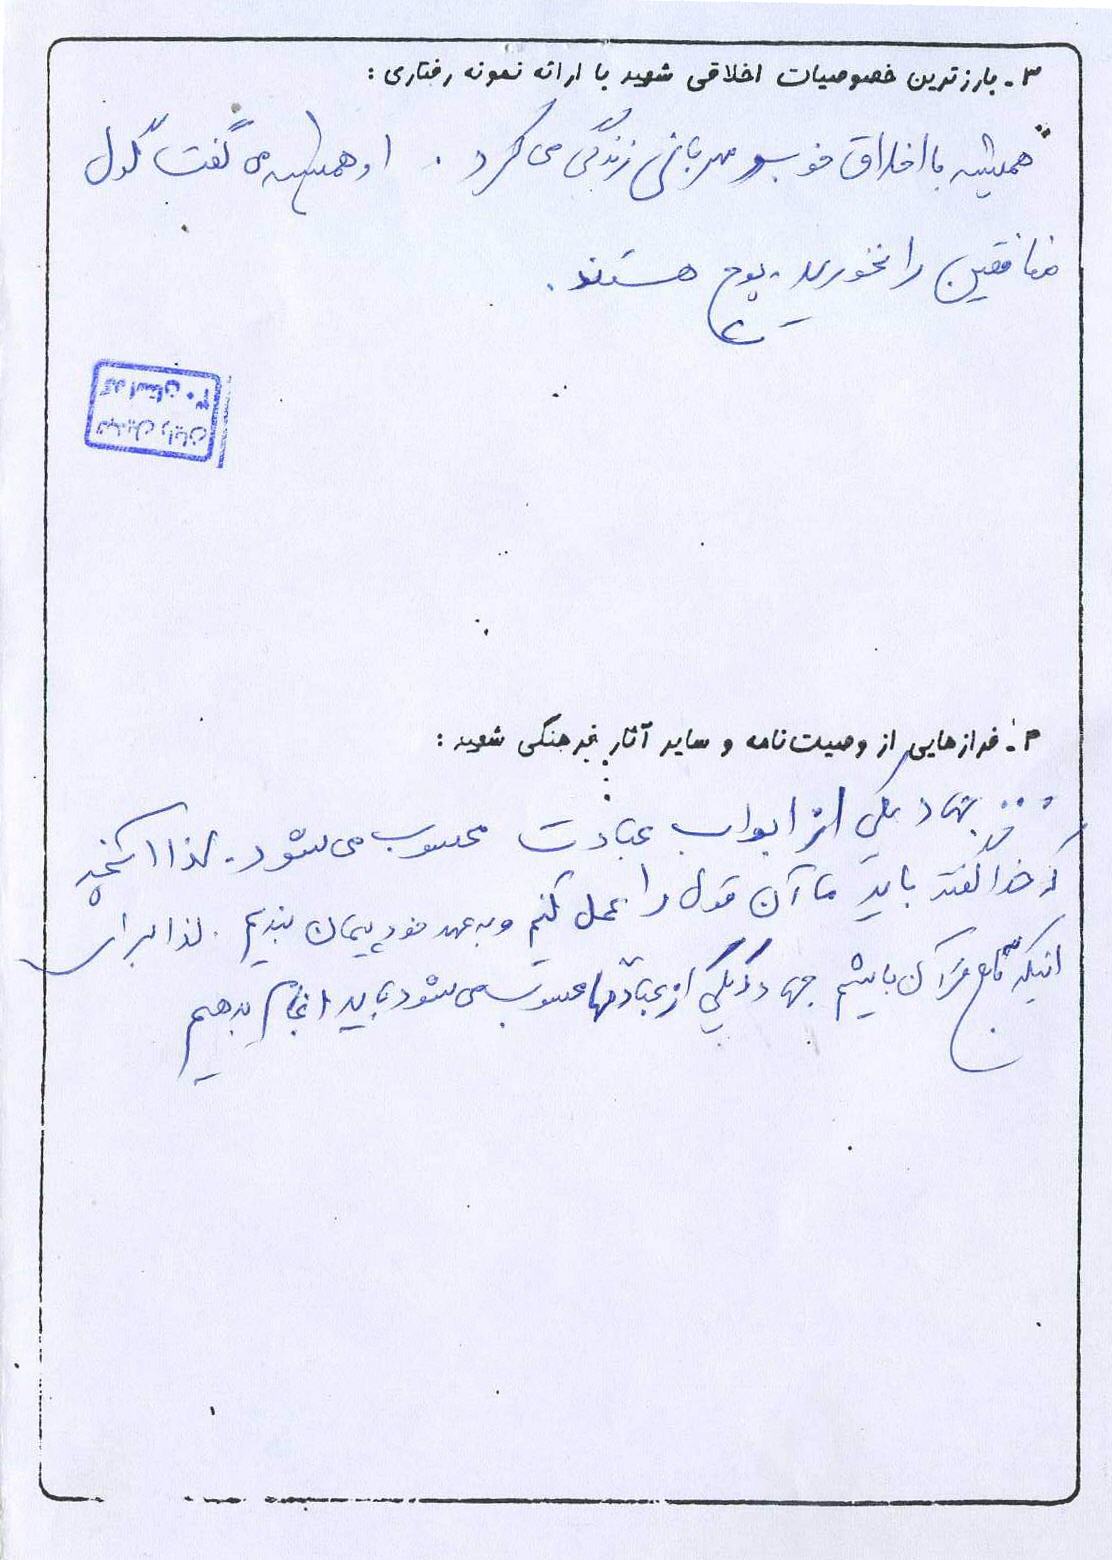 ۳- بارزترین خصوصیات اخلاقی شهید با ارائه نمونه رفتاری :
همیشه با اخلاق خوب و مهربانی زندگی می کرد . او همیشه می گفت گول
منافقین را نخورید . پوچ هستند .
کد استان ۳۰
تبدیل رایان
۴- فرازهایی از وصیت‌نامه و سایر آثار فرهنگی شهید :
... جهاد یکی از ابواب عبادت محسوب می شود . لذا آنچه
که خدا گفته باید ما آن قول را عمل کنیم و به عهد خود پیمان بندیم . لذا برای
اینکه تابع قرآن باشیم جهاد که یکی از عبادتها محسوب می شود باید انجام بدهیم